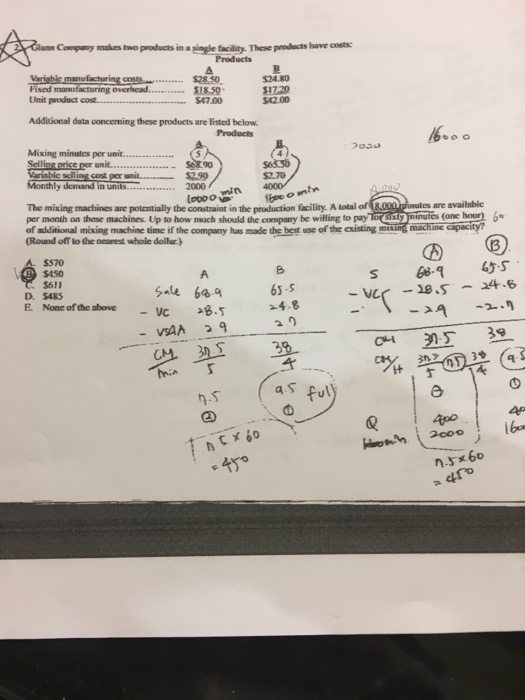 2. Glunn Company makes two products in a single facility. These products have costs:
Products
A B
Variable manufacturing costs............ $28.50 $24.80
Fixed manufacturing overhead............ $18.50 $17.20
Unit product cost............ $47.00 $42.00
Additional data concerning these products are listed below.
Products
A B
16000
Mixing minutes per unit............ 5 4
Selling price per unit............ $68.90 $65.50
Variable selling cost per unit............ $2.90 $2.70
Monthly demand in units............ 2000 4000
10000 min 16000 min
The mixing machines are potentially the constraint in the production facility. A total of 18,000 minutes are available
per month on these machines. Up to how much should the company be willing to pay for sixty minutes (one hour) 60
of additional mixing machine time if the company has made the best use of the existing mixing machine capacity?
(Round off to the nearest whole dollar.)
A. $570
B. $450
C. $611
D. $485
E. None of the above
A B
Sale 68.9 65.5
- VC 28.5 24.8
- VSAA 29 27
CM 37.5 38
min 5 4
7.5 9.5 full
② ①
7.5 x 60
= 450
A B
S 68.9 65.5
- VC - 28.5 - 24.8
- 29 - 2.7
CM 37.5 38
CM/H 37.5 7.5 38 9.5
5 4
Q 400
2000
7.5x60
= 450